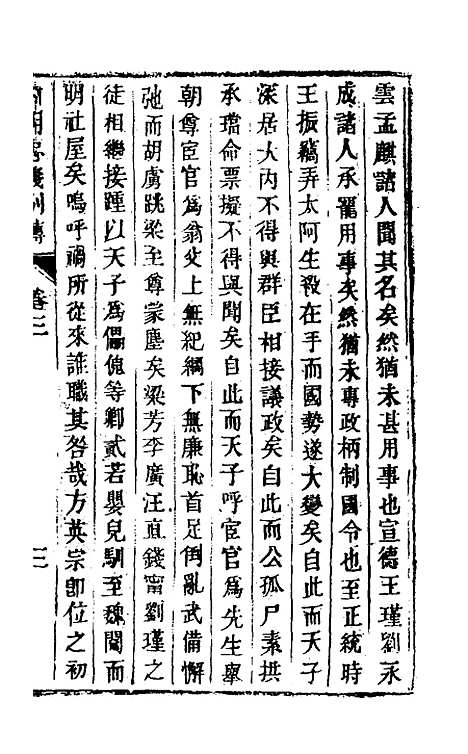 雲孟麒諸人聞其名矣然猶未甚用事也宣德王瑾劉永
成諸人承寵用事矣然猶未專政柄制國令也至正統時
王振竊弄太阿生殺在手而國勢遂大變矣自此而天子
深居大內不得與群臣相接議政矣自此而公孤尸素拱
承璫命票擬不得與聞矣自此而天子呼宦官為先生舉
朝尊宦官為翁父上無紀綱下無廉恥首足倒亂武備懈
弛而胡虜跳梁至尊蒙塵矣梁芳李廣汪直錢甯劉瑾之
徒相繼接踵以天子為傀儡等卿貳若嬰兒馴至魏閹而
明社屋矣嗚呼禍所從來誰職其咎哉方英宗卽位之初
卷三
三